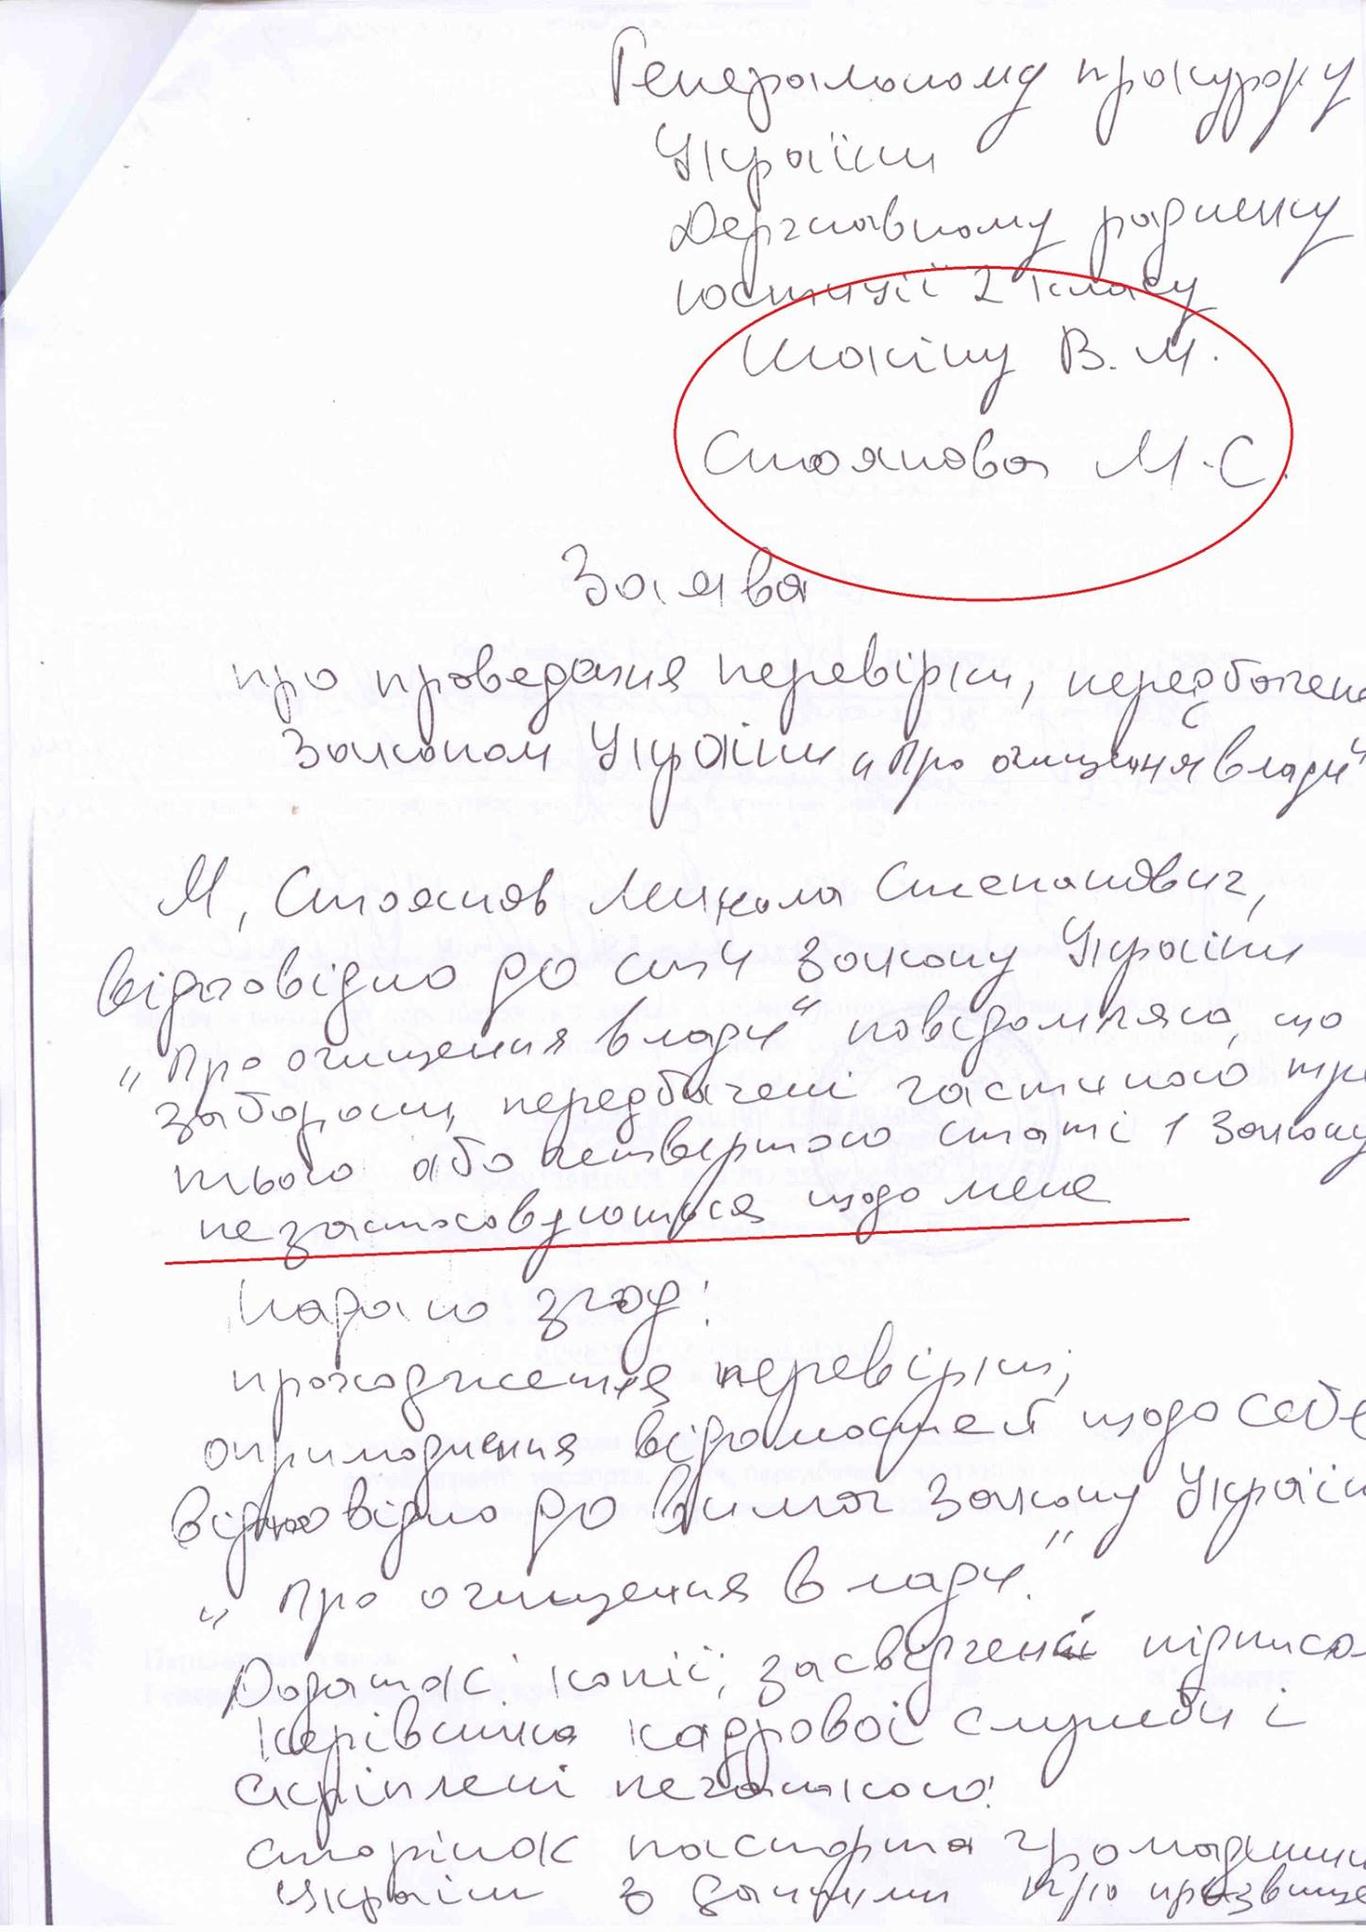 Генеральному прокурору
України
Державному раднику
юстиції 2 класу
Шокіну В.М.
Стоянова М.С.
Заява
про проведення перевірки, передбачене
Законом України „Про очищення влади"
Я, Стоянов Микола Степанович,
відповідно до ст. 4 Закону України
„Про очищення влади" повідомляю, що
заборони, передбачені частиною тре
тьою або четвертою статті 1 Закону
не застосовуються щодо мене
Надаю згоду:
проходження перевірки;
оприлюднення відомостей щодо себе
відповідно до вимог Закону України
„Про очищення влади."
Додаток: копії, засвідчені підписо
керівника кадрової служби і
скріплені печаткою:
сторінок паспорта громадянин
України з даними про прізвище